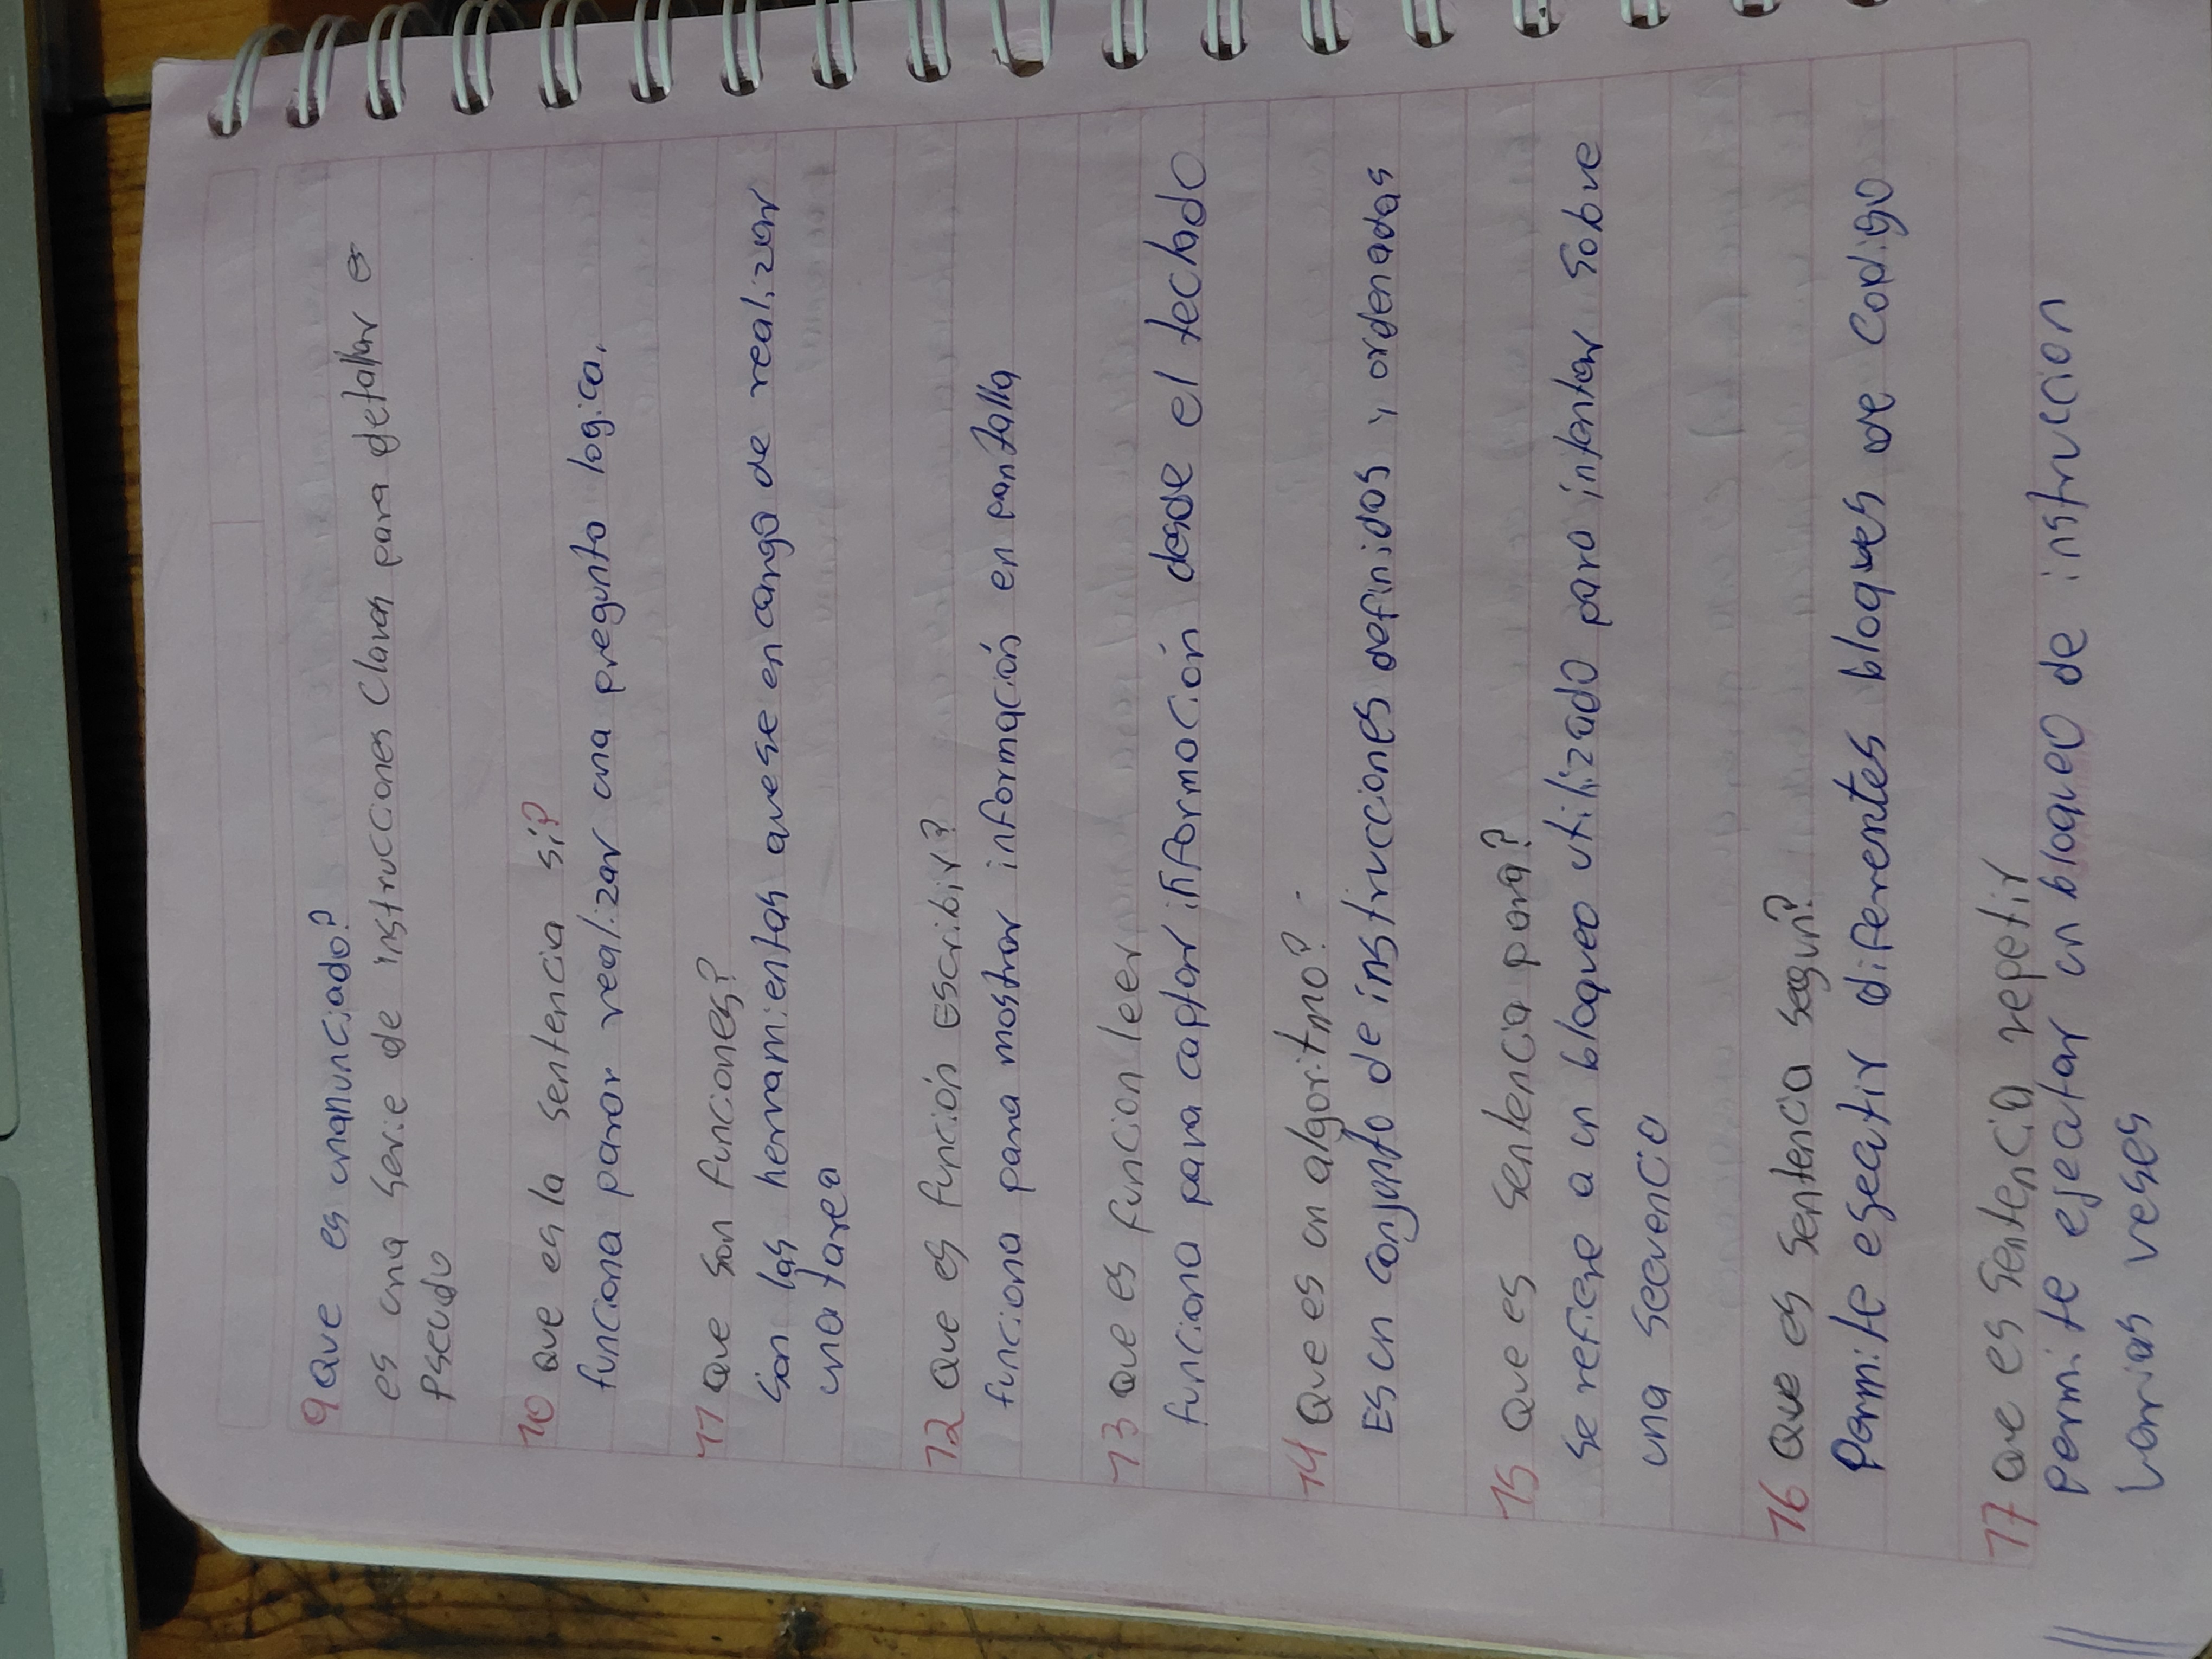 9 Que es unanunciado?
es una serie de instrucciones Claras para detallar e
Pseudo
10 que es la sentencia si?
funciona paror realizar una pregunta logica.
11 que son funciones?
son las herramientas que se en cargo de realizar
una tarea
12 Que es función escribir?
funciona para mostrar información en pantalla
13 que es funcion leer
funciona para captar información desde el teclado
14 Que es un algoritmo?
ES un conjunto de instrucciones definidos, ordenadas
15 Que es sentencia para?
se refiere a un bloqueo utilizado para intentar sobre
una secuencia
16 Que es sentencia segun?
Permite esecutir diferentes bloques de codigo
17 que es sentencia repetir
permite ejecutar un bloqueo de instruccion
varias veses